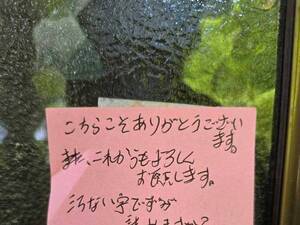 こちらこそありがとうござい
ます。
また、これからもよろしく
お願いします。
汚ない字ですが
読めますか?